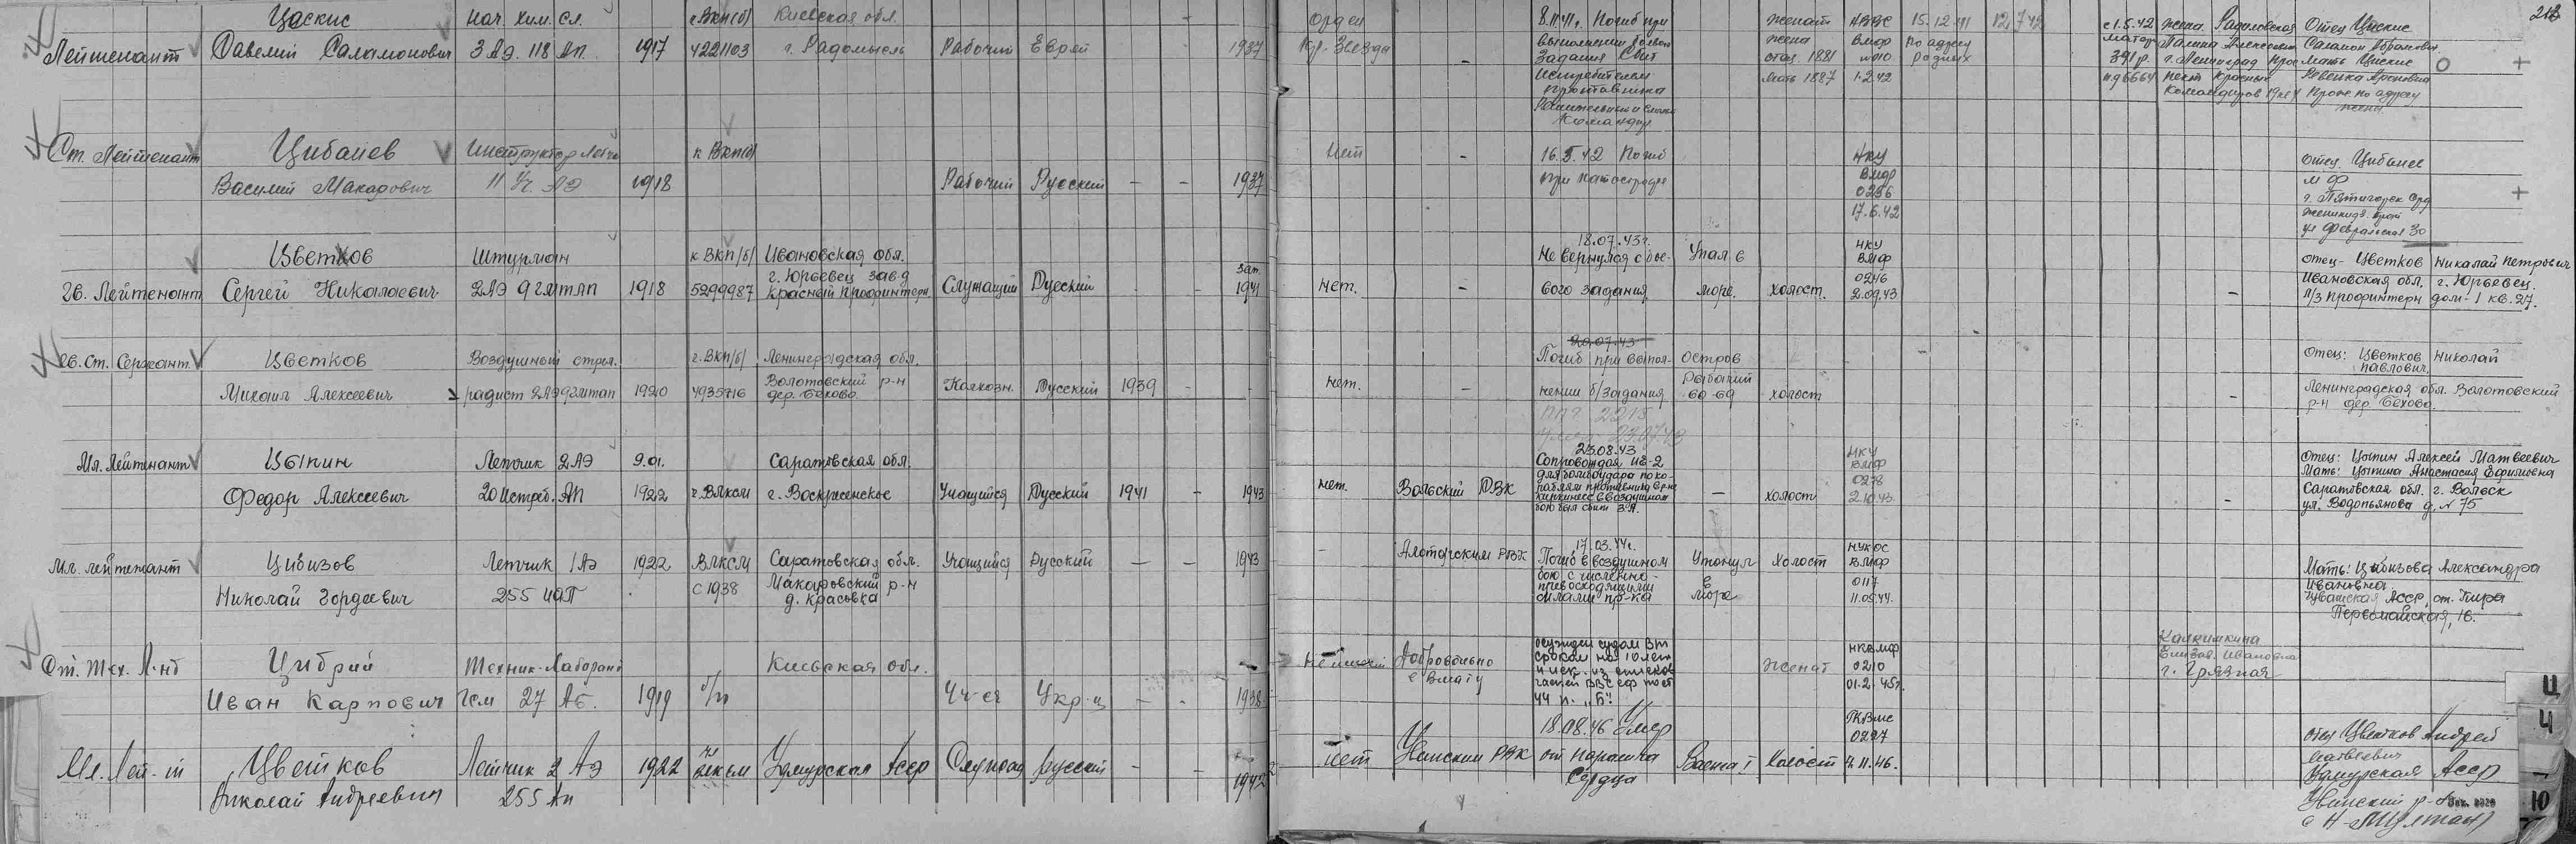 218
Лейтенант
Цаскис
Савелий Саламонович
Нач. хим. сл.
3 АЭ. 118 АП.
1917
к ВКП(б)
4221103
Киевская обл.
г. Радомысль
Рабочий
Еврей
1937
Орден
Кр. Звезда
8.11.41г. Погиб при
выполнении боевого
задания Сбит
истребителем
противника
женат
жена
отец 1881
мать 1887
ВМФ
1.2.42
15.12.41
По адресу
родных
12.7.42
с 1.5.42
391р.
жена. Радоловская
Галина Алексеевна
г. Ленинград
Красных
Командиров
Отец Цаскис
Саламон Абрамович
Мать Цаскис
Ревекка Ароновна
Прож по адресу
жены
Ст. Лейтенант
Цибанев
Василий Макарович
Инструктор летч
11 Уч АЭ
1918
к ВКП(б)
Рабочий
Русский
1937
Нет
16.5.42 Погиб
при катастрофе
НКУ
ВМФ
0236
17.6.42
отец Цибанев
М Ф
г. Пятигорск Орд
жоникидз. край
ул Февральская 30
Гв. Лейтенант
Цветков
Сергей Николаевич
Штурман
2АЭ 9 гмтап
1918
к ВКП/б/
5299987
Ивановская обл.
г. Юрьевец зав-д
Красный Профинтерн
Служащий
Русский
зап.
1941
Нет.
18.07.43г.
Не вернулся с бое-
вого задания
Упал в
море.
холост.
НКУ
ВМФ
0246
2.09.43
отец - Цветков Николай Петрович
Ивановская обл. г. Юрьевец.
Л/з Профинтерн дом-1 кв. 27.
Гв. Ст. Сержант
Цветков
Михаил Алексеевич
Воздушный стрел.
радист 2АЭ 9гмтап
1920
г. ВКП/б/
4935716
Ленинградская обл.
Волотовский р-н
дер. Бехово.
Колхозн.
Русский
1939
Нет.
20.07.43
Погиб при выпол-
нении б/задания
23.07.43
Остров
Рыбачий
60-69
холост
Отец: Цветков Николай
Павлович.
Ленинградская обл. Волотовский
р-н дер. Бехово.
Мл. Лейтенант
Цыпин
Федор Алексеевич
Летчик 2АЭ
20 Истреб. АП
9.01.
1922
ч. ВЛКСМ
Саратовская обл.
г. Воскресенское
Учащийся
Русский
1941
1943
Нет.
Вольский РВК
23.08.43
Сопровождая ИЛ-2
для бомбоудара по ко-
раблям противника в р-не
Киркинесс в воздушном
бою был сбит З.А.
холост
НКУ
ВМФ
0278
2.10.43.
Отец: Цыпин Алексей Матвеевич
Мать: Цыпина Анастасия Ефимовна
Саратовская обл. г. Вольск
ул. Водопьянова д. № 75
Мл. лейтенант
Цибизов
Николай Гордеевич
Летчик 1АЭ
255 ИАП
1922
ВЛКСМ
с 1938
Саратовская обл.
Макаровский р-н
д. Красовка
Учащийся
Русский
1943
РВК
17.03.44г.
Погиб в воздушном
бою с численно-
превосходящими
силами пр-ка
Утонул
в
море
Холост
НУК ОС
ВМФ
0117
11.05.44.
Мать: Цыбизова Александра
Ивановна.
Чувашская АССР, ст.
Первомайская, 16.
Ст. тех. Л-нт
Цибрий
Иван Карпович
Техник-Лаборант
ГСМ 27 АБ.
1919
б/п
Киевская обл.
Уч-ся
Укр-ц
1938
Не имеет
Добровольно
в ВМАТУ
осужден судом ВТ
сроком на 10 лет
и искл. из списков
частей ВВС СФ
женат
НКВМФ
0210
01.2.45г.
Калиничкина
Елизав. Ивановна
г. Грязная
Мл. Лей-т
Цветков
Николай Андреевич
Летчик 2 АЭ
255 АП
1922
чл
ВЛКСМ
Удмурская АССР
Служащ
русский
1942
Нет
Увинским РВК
18.08.46 Умер
от паралича
Сердца
Ваенга I
Холост
ГКВМС
0227
4.11.46.
отец Цветков Андрей
Матвеевич
Удмурская АССР
Увинский р-н
с Н-Мултан
Ц
Ч
Ю